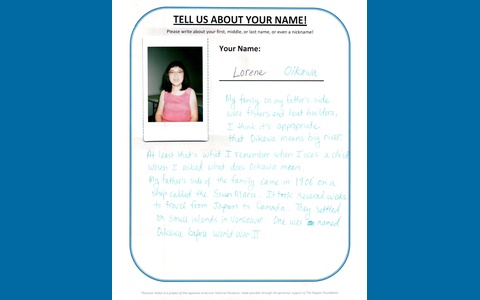 TELL US ABOUT YOUR NAME!
Please write about your first, middle, or last name, or even a nickname!
Your Name:
Lorene Oikawa
My family on my father's side
were fishers and boat builders.
I think it's appropriate
that Oikawa means big river.
At least that's what I remember when I was a child
when I asked what does Oikawa mean.
My father's side of the family came in 1906 on a
ship called the Suian Maru. It took several weeks
to travel from Japan to Canada. They settled
on small islands in Vancouver. One was named
Oikawa before World War II